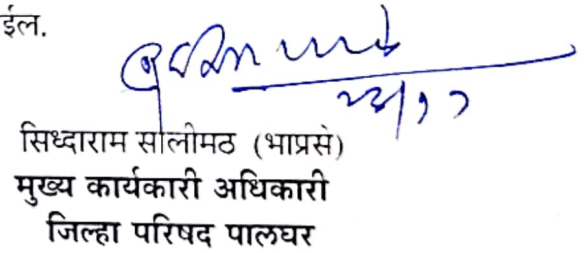 ईल.
सिध्दाराम सालीमठ (भाप्रसे)
मुख्य कार्यकारी अधिकारी
जिल्हा परिषद पालघर